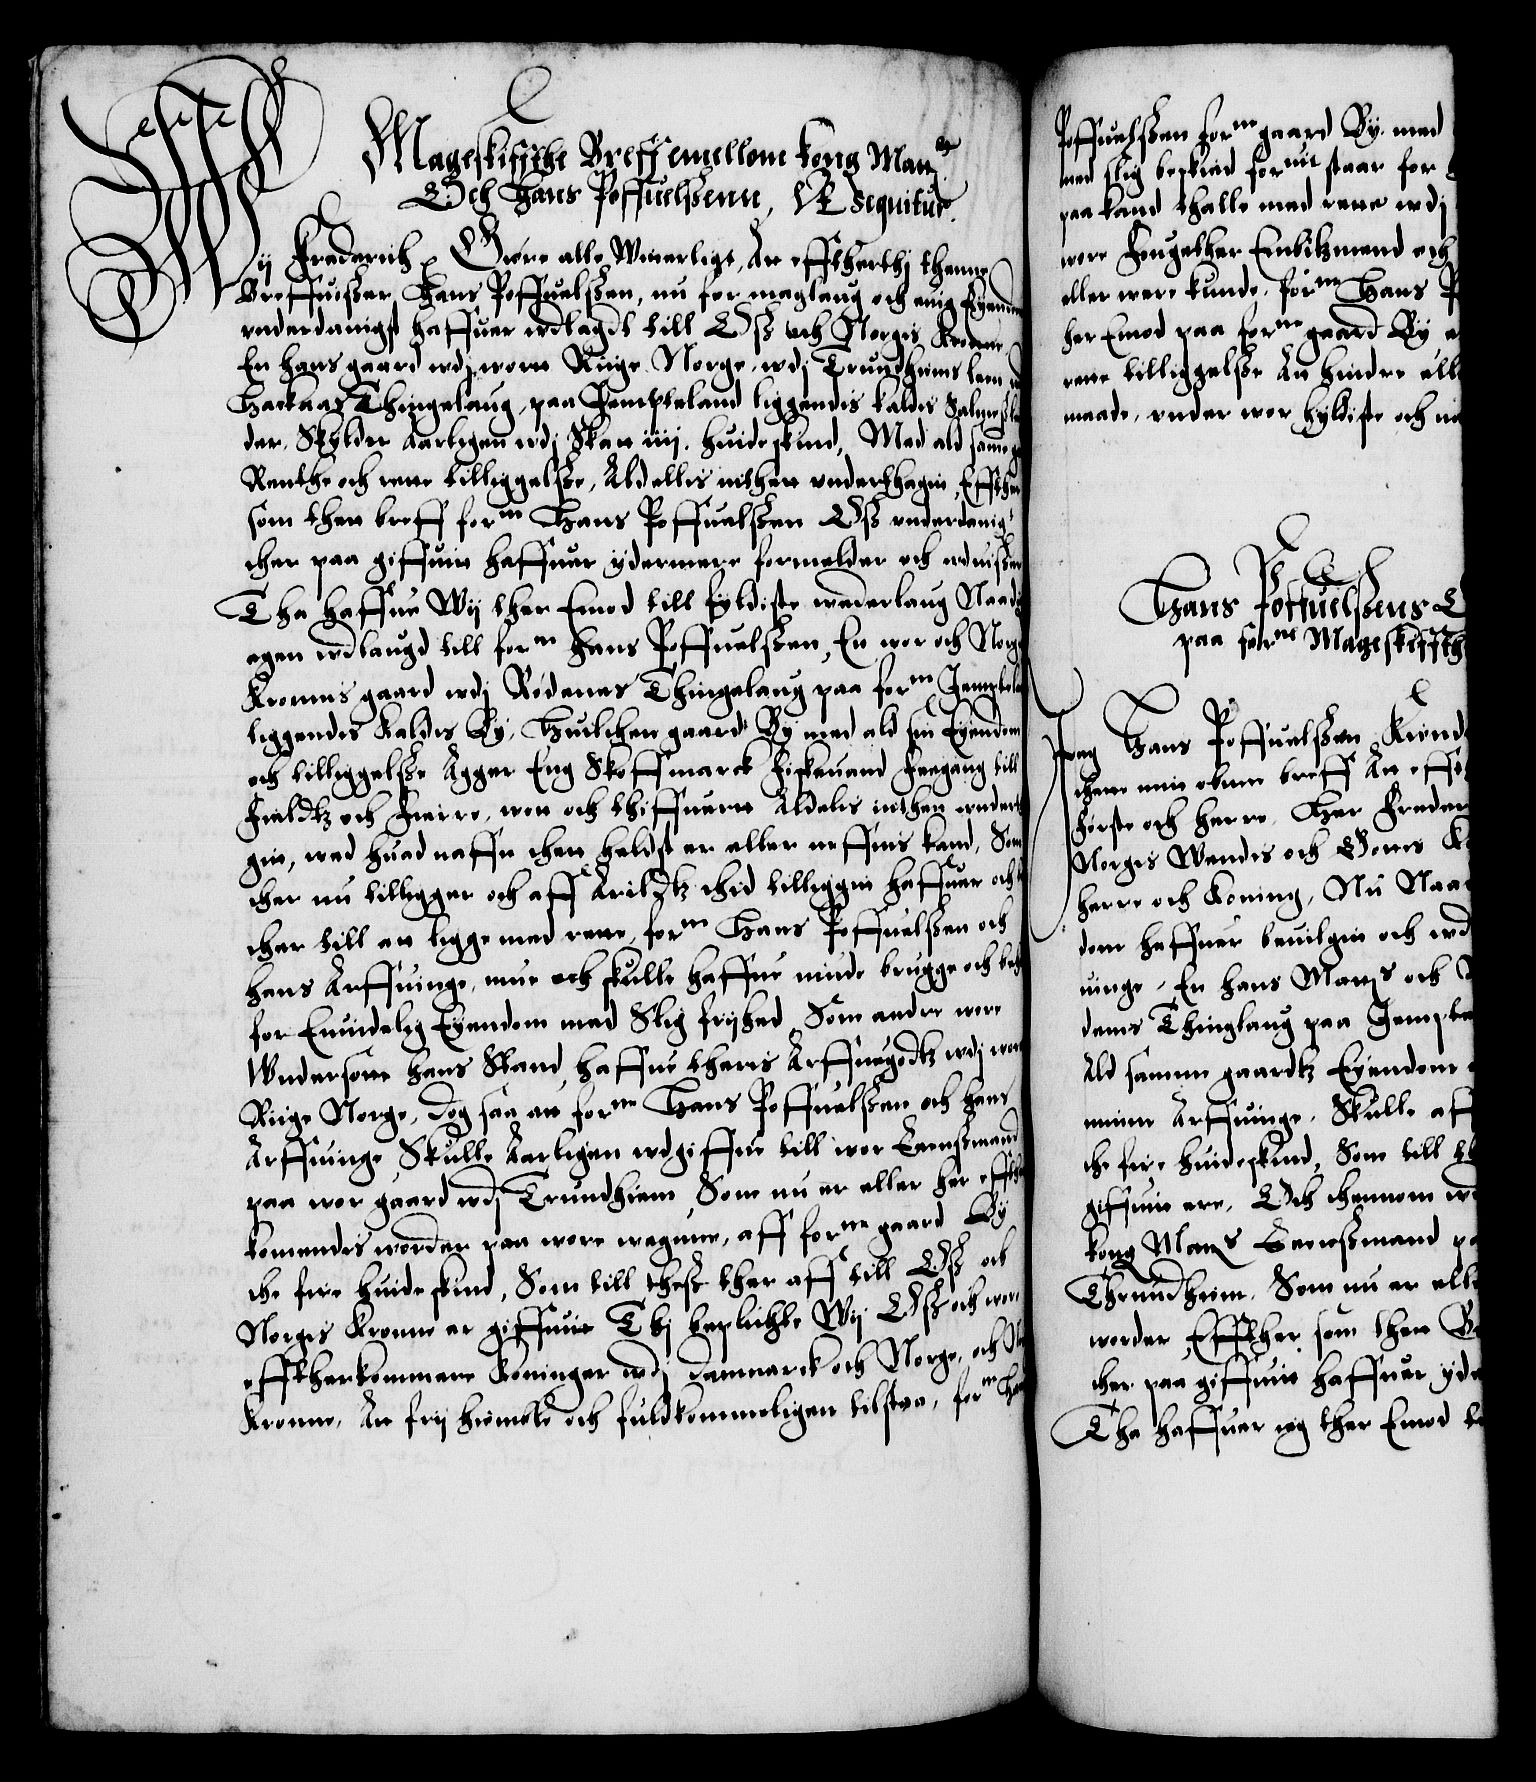 Mageskiffthe Breff emellom kong Matz
Och Hans Poffuelssenn, Vt sequitur.
Wij Frederich etc Giøre alle Witterligt, At effthertij thenne
Breffuisser Hans Poffuelssen, nu for mageLaug och euig Eyendom
vnderdanigst haffuer wdlagdt till Oss och Norgis Krone
En hans gaard wdj wort Riige Norge, wdj Trundhiems leen
Hackaas Thingelaug, paa Jempteland liggendis kaldis
der, Skylder Aarligen wdj Skat iiij. huideskind, Med ald samme
Renthe och rette tilliggelsse, Aldelis inthet vnderthagen, Effther
som thet breff forne Hans Poffuelssen Oss vnderdanigst
ther paa giffuit haffuer ydermere formelder och wduisser
Tha haffue Wij ther Emod till fyldiste wederlaug
igen wdlaugd till forne Hans Poffuelssen, En wor och Norgis
Kronnis gaard wdj Rødenes Thingelaug paa forne Jempteland
liggendis kaldis By, Huilcken gaard By med ald sin Eyendom
och tilliggelsse Agger Eng Skoff marck Fiskeuand Feegang till
Fieldtz och Fierre, wot och thiffuert Aldelis inthet vndert
git, wed huad naffn thet heldst er eller neffnis kand, Som
ther nu tilligger och aff Arildtz thid tilliggit haffuer och
ther till at ligge med rette, forne Hans Poffuelssen och
hans Arffuinge, mue och skulle haffue niude brugge och beholde
for Euindelig Eyendom med Slig frijhed, Som andre wore
Wndersotte hans Stand, haffue theris Arffuegodtz wdj wort
Riige Norge, Dog saa at forne Hans Poffuelssen och hans
Arffuinge Skulle Aarligen wdgiffue till wor Leenssmand
paa wor gaard wdj Trundhiem, Som nu er eller her effther
komendis worder paa wore wegnne, aff forne gaard By
the fire huide skind, Som till thess ther aff till Oss och
Norgis Krone er giffuit Thj beplichte Wij Oss och wore
efftherkommere Koninger wdj Danmarck och Norge, och
Kronne, At frij hiemble och fuldkommeligen tilstaa, forne Hans
Poffuelssen forne gaard By, med
med slig beskeed forne staar for
paa kand thalle med rette wdj
wore Fougether Embitzmend och
eller were kunde, forne Hans
her Emod paa forne gaard By
rette tilliggelsse At hindre eller
maade, vnder wor hyldiste och
Hans Poffuelssens
paa forne Mageskiffthe
Jeg Hans Poffuelssen Kiendis
thette mit obne breff At effther
Første och herre, Her Frederich
Norgis Wendis och Gottis
herre och Koning, Nu
dom haffuer beuilget och wd
uinge, En hans Matz och
denes Thinglaug paa Jempteland
Ald samme gaardtz Eyendom
minne Arffuinge, Skulle aff
the fire huideskind, Som till
giffuit ere, Och thennom wd
kong Matz Leenssmand paa
Thrundhiem, Som nu er eller
worder, Effther som thet Breff
ther paa giffuit haffuer yder
Tha haffuer ieg ther Emod